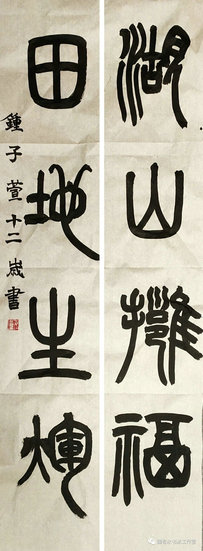 湖山擁福
田地生輝
鍾子萱十二歲書